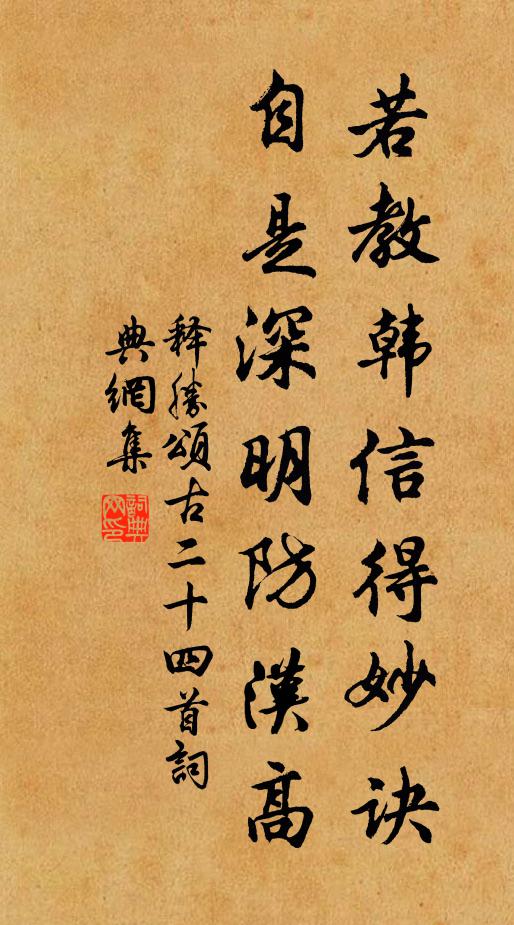 若教韩信得妙诀
自是深明防漢高
释勝頌古二十四首詞
典網集
詞典
网印